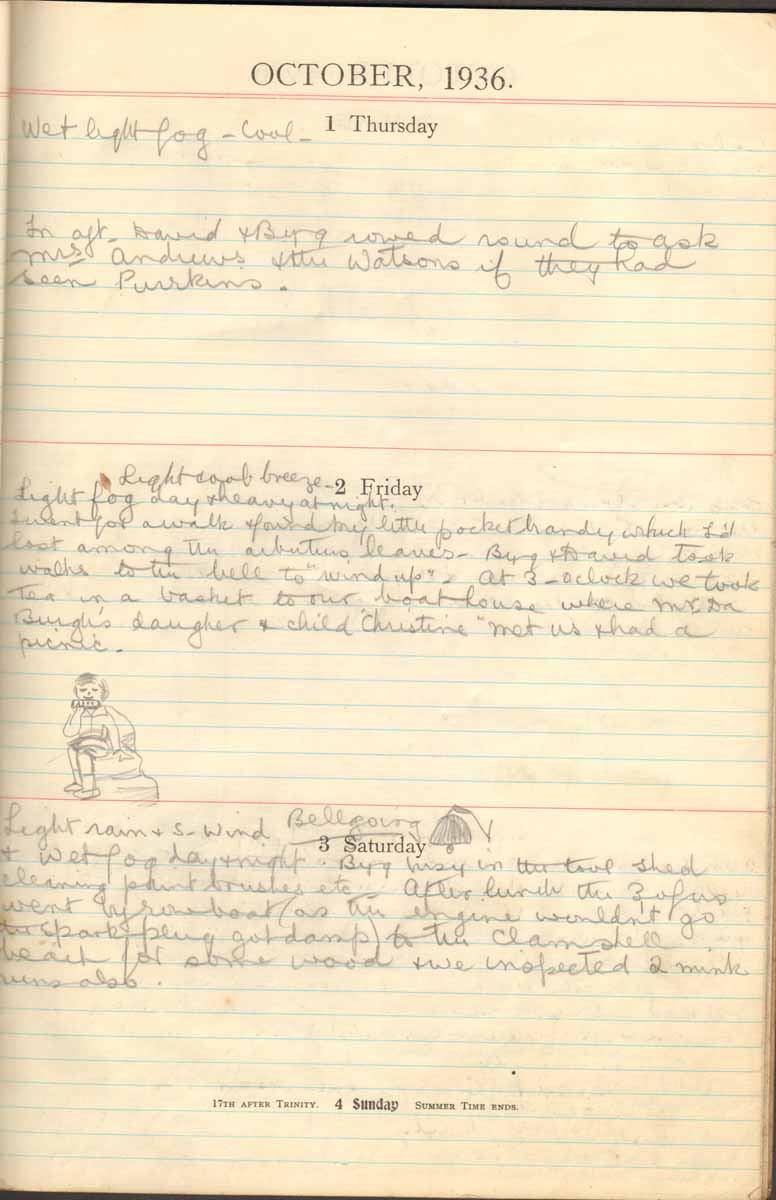 OCTOBER, 1936.
1 Thursday
Wet light fog - Cool -
In aft - David & Byrg rowed round to ask
Mrs Andrews & the Watsons if they had
seen Purrkins.
2 Friday
Light breeze -
Light fog day & heavy at night.
I went for a walk & found my little pocket handy which I'd
lost among the arbutus leaves - Byrg & David took
walks to the bell to "wind up" - At 3 - oclock we took
Tea in a basket to our boat house where Mr. Da
Burgh's daugher & child "Christine" met us & had a
picnic.
Light rain & S - Wind Bellgoing
3 Saturday
& Wet fog day & night. Byrg busy in the tool shed
cleaning paint brushes etc - After lunch the 3 of us
went by rowboat (as the engine wouldn't go
the spark plug got damp) to the Clamshell
beach for some wood & we inspected 2 mink
also.
17TH AFTER TRINITY. 4 Sunday SUMMER TIME ENDS.